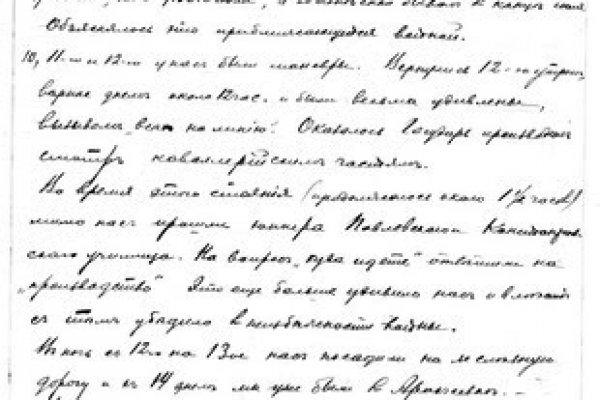 Объяснялось это приближающейся войной.
10, 11-го и 12-го у нас были маневры. Вернулись 12-го утром,
вернее днем около 12 час. и были весьма удивлены,
вызовом "всех на линию". Оказалось Государь производил
смотр кавалерийским частям.
Во время этого стояния (продолжалось около 1½ часов)
мимо нас прошли юнкера Павловского
ского училища. На вопрос "куда идете" отвечали на
"производство" Это еще больше удивило нас и
с этим убедило в неизбежности войны.
В ночь с 12-го на 13-ое нас посадили на железную
дорогу и в 14 днем мы уже были в